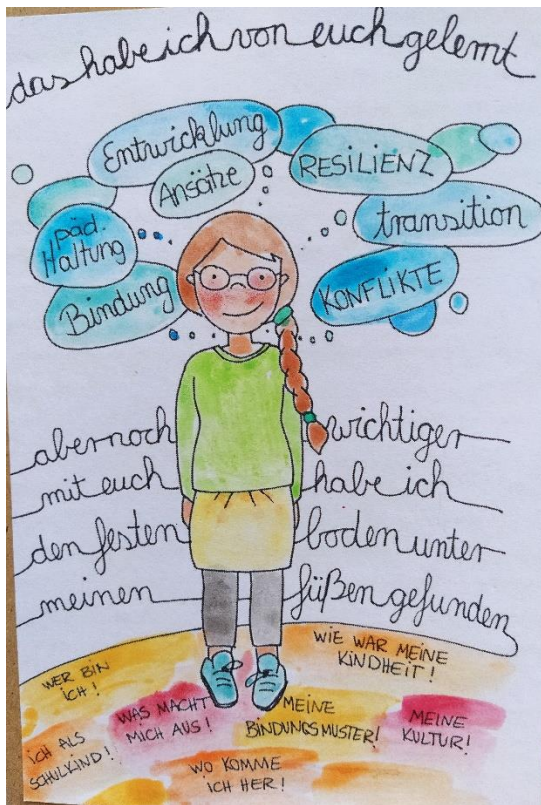 das habe ich von euch gelernt
Entwicklung
Ansätze
RESILIENZ
päd.
Haltung
transition
Bindung
KONFLIKTE
aber noch wichtiger
mit euch habe ich
den festen boden unter
meinen füßen gefunden
WER BIN
ICH!
WIE WAR MEINE
KINDHEIT!
ICH ALS
SCHULKIND!
WAS MACHT
MICH AUS!
MEINE
BINDUNGSMUSTER!
MEINE
KULTUR!
WO KOMME
ICH HER!